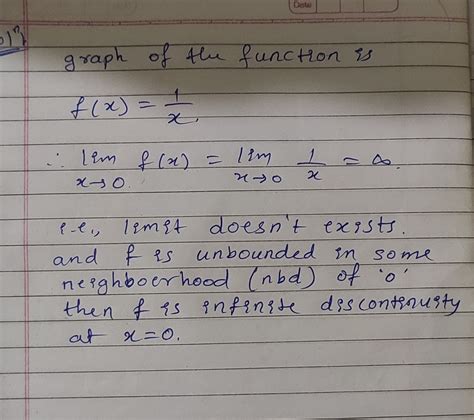 Date
graph of the function is
f(x) = 1/x.
∴ lim x→0. f(x) = lim x→0 1/x = ∞.
i.e., limit doesn't exists.
and f is unbounded in some
neighboerhood (nbd) of '0'
then f is infinite discontinuity
at x=0.